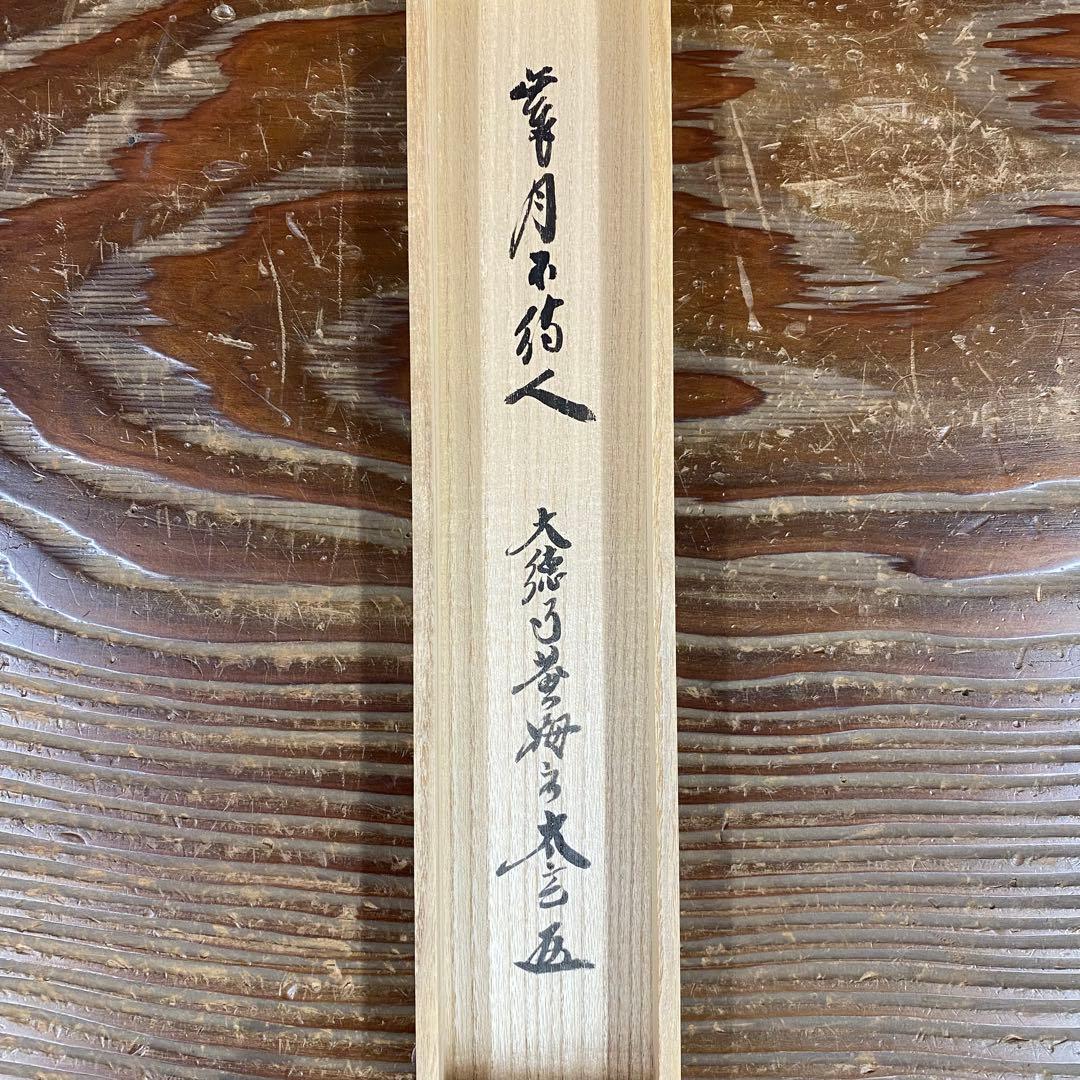 華月不待人
大徳寺黄梅院太玄